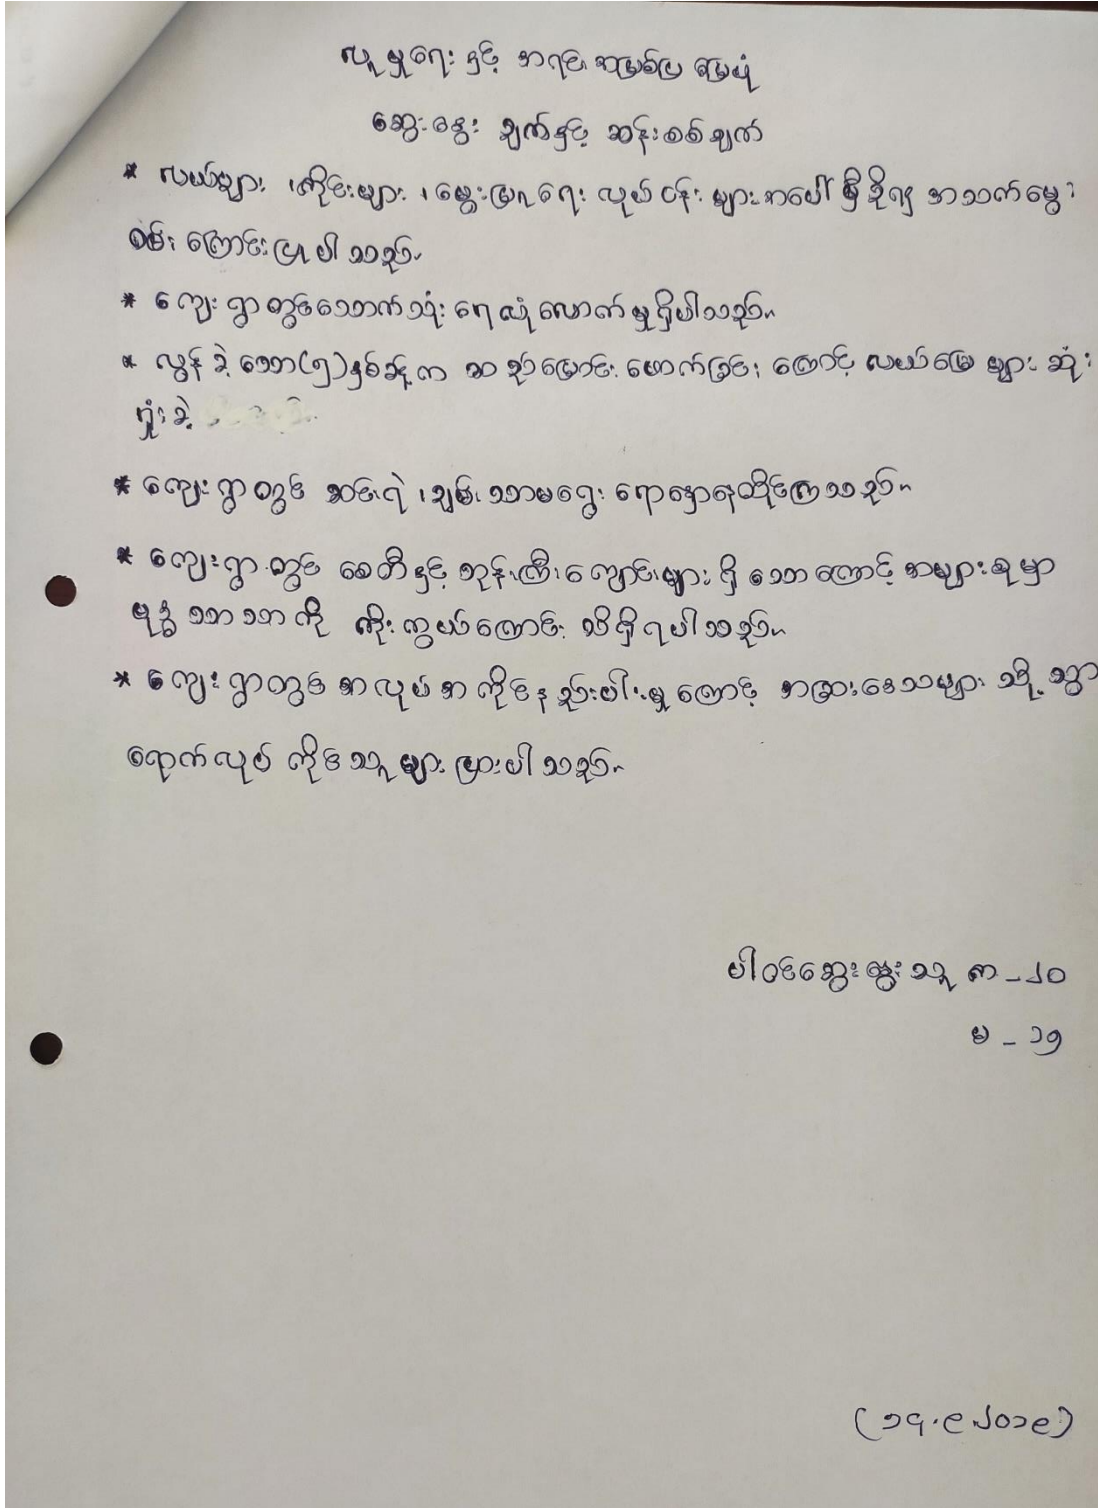 လူမှုရေးနှင့် အရင်းအမြစ်ပြ မြေပုံ
ဆွေးနွေး ချက်နှင့် ဆန်းစစ်ချက်
* လယ်များ ၊ကိုင်းများ ၊မွေးမြူရေး လုပ်ငန်းများအပေါ် မှီခိုရ၍ အသက်မွေး
ဝမ်းကြောင်းပြုပါသည်။
* ကျေးရွာတွင်သောက်သုံး ရေလုံလောက်မှုရှိပါသည်။
* လွန်ခဲ့သော(၅)နှစ်ခန့်က ဆည်မြောင်းဖောက်ခြင်းကြောင့် လယ်မြေများ ဆုံး
ရှုံးခဲ့
* ကျေးရွာတွင် ဆင်းရဲ ၊ချမ်းသာမရွေး ရောနှောနေထိုင်ကြသည်။
* ကျေးရွာတွင် စေတီနှင့် ဘုန်းကြီးကျောင်းများ ရှိသောကြောင့် အများစုမှာ
ဗုဒ္ဓဘာသာကို ကိုးကွယ်ကြောင်း သိရှိရပါသည်။
* ကျေးရွာတွင် အလုပ်အကိုင်နည်းပါးမှုကြောင့် အခြားဒေသများသို့ သွား
ရောက်လုပ်ကိုင်သူများ များပါသည်။
ပါဝင်ဆွေးနွေးသူ ကာ_၂၀
မ _ ၁၅
(၁၄.၉.၂၀၁၉)